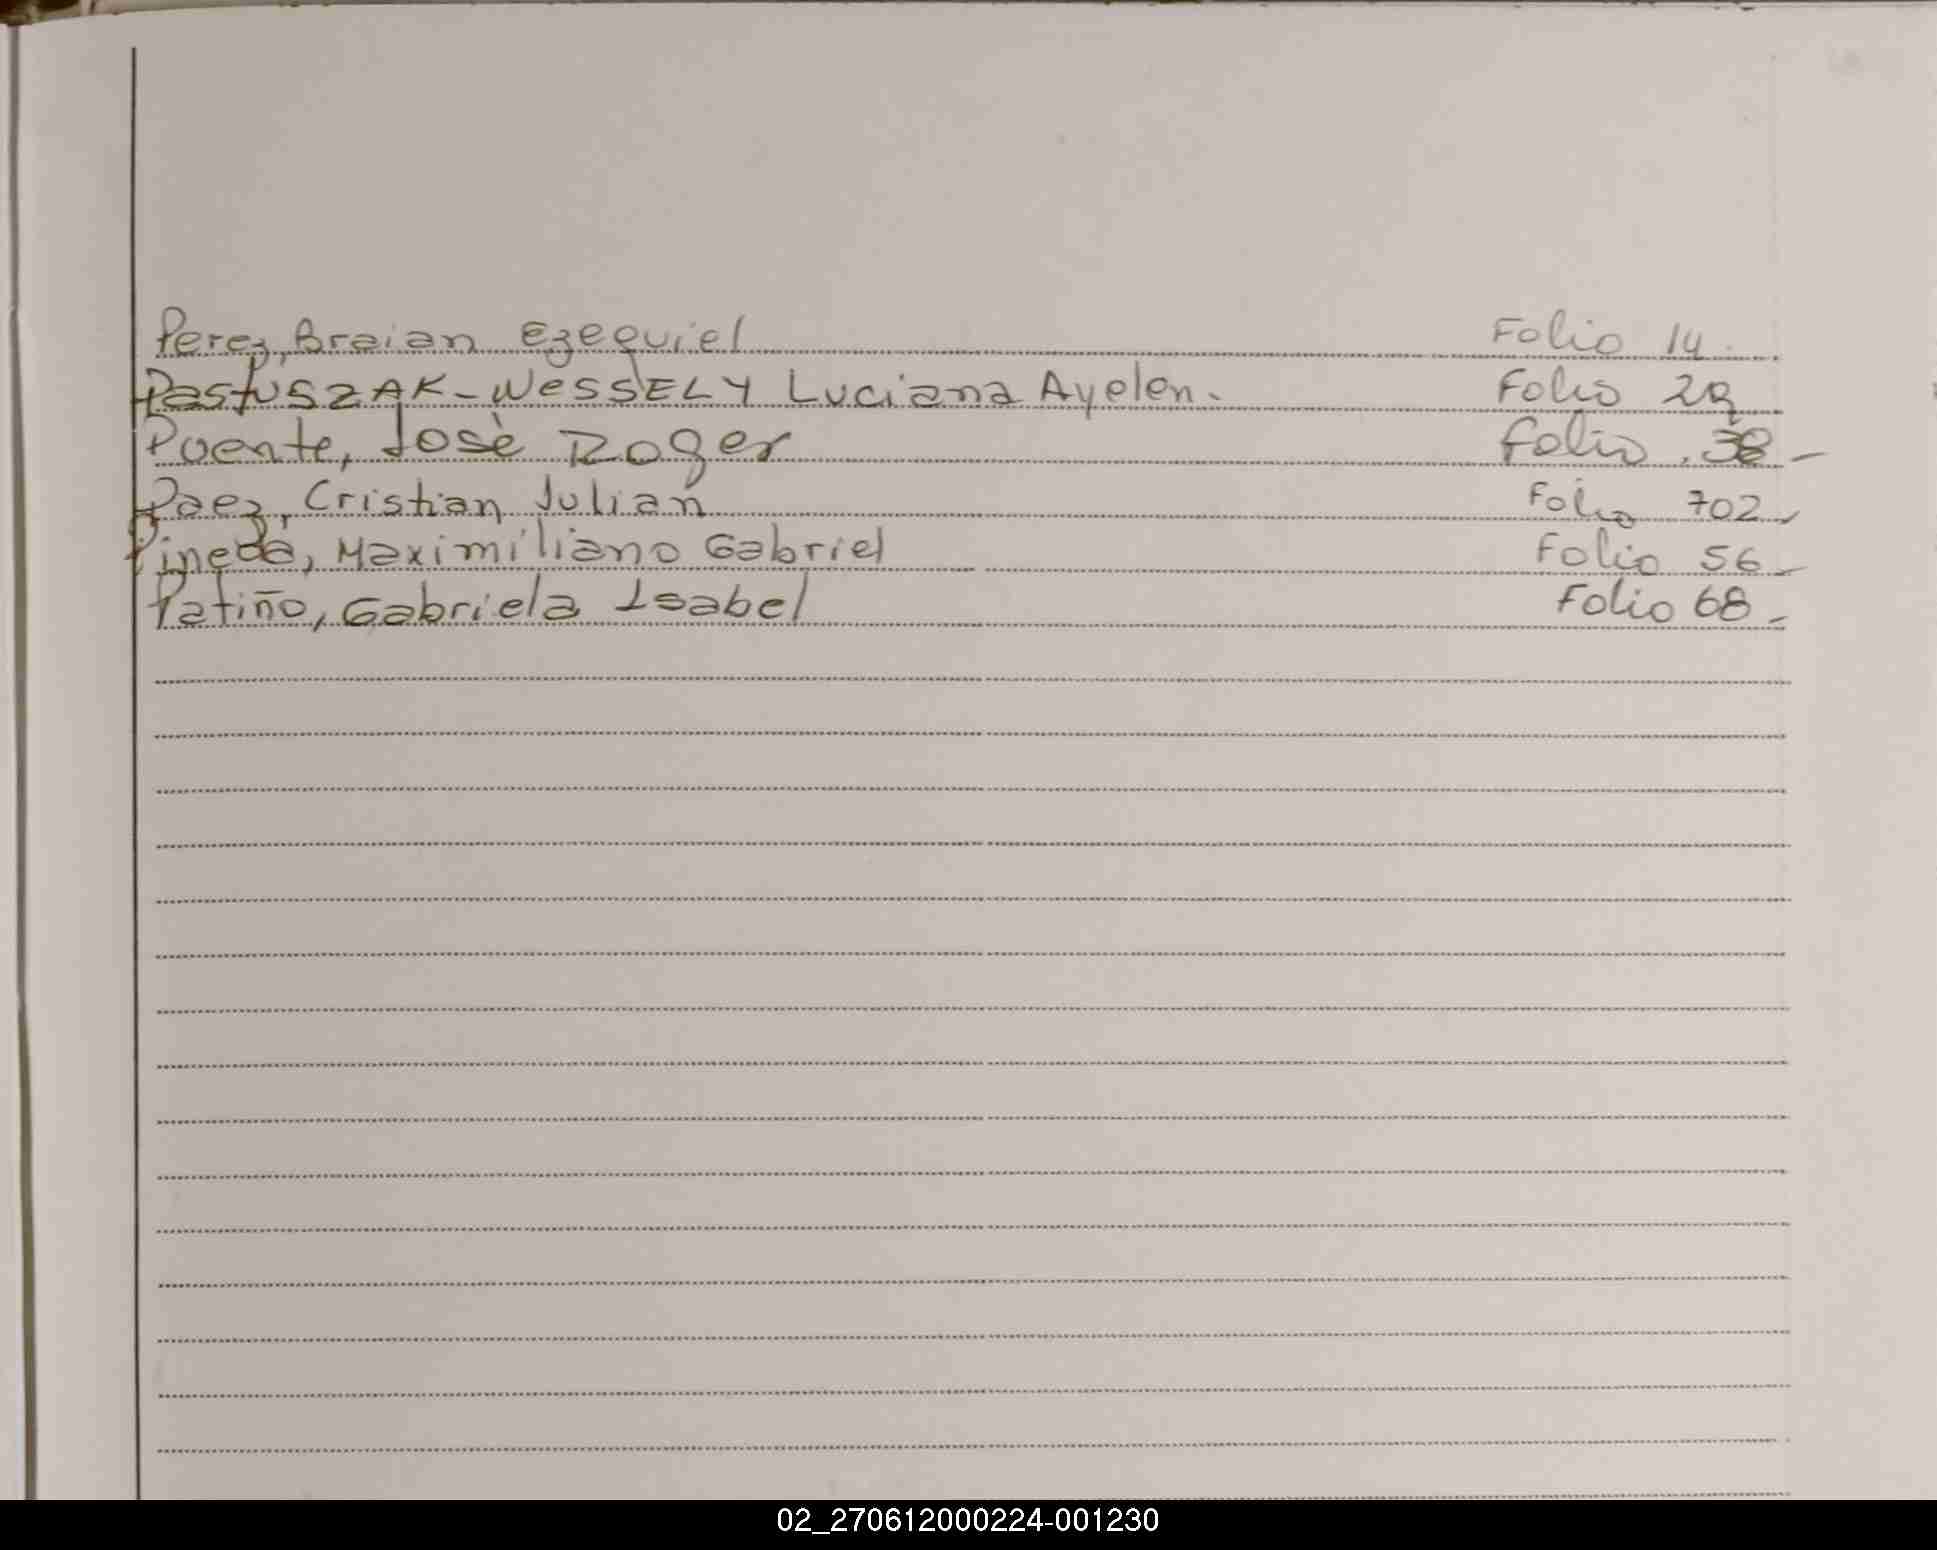 Perez, Braian Ezequiel Folio 14.
PastUSZAK-WESSELY Luciana Ayelen. Folio
Puente, Josè Roger Folio 38-
Paez, Cristian Julian Folio 702
Pineda, Maximiliano Gabriel Folio 56-
Patiño, Gabriela Isabel Folio 68-
02_270612000224-001230